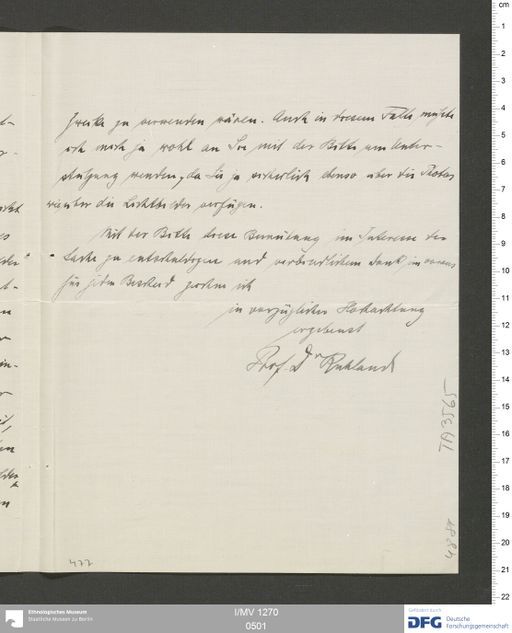 Zwecke zu verwenden wären. Auch in diesem Falle müßte
ich mich ja wohl an Sie mit der Bitte um Unter-
stützung wenden, da Sie ja sicherlich ebenso über die Photos
wie über die Lichtbilder verfügen.
Mit der Bitte diese Bemühung im Interesse der
Sache zu entschuldigen und verbindlichstem Dank im voraus
für jeden Bescheid zeichne ich
in vorzüglicher Hochachtung
ergebenst
Prof. Dr Ruhland
TA 3565
477
Ethnologisches Museum
Staatliche Museen zu Berlin
I/MV 1270
0501
Gefördert durch
DFG Deutsche
Forschungsgemeinschaft
cm
1
2
3
4
5
6
7
8
9
10
11
12
13
14
15
16
17
18
19
20
21
22